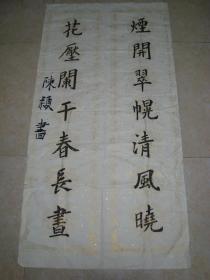 煙開翠幌清風曉
花壓闌干春長晝
陳穎書